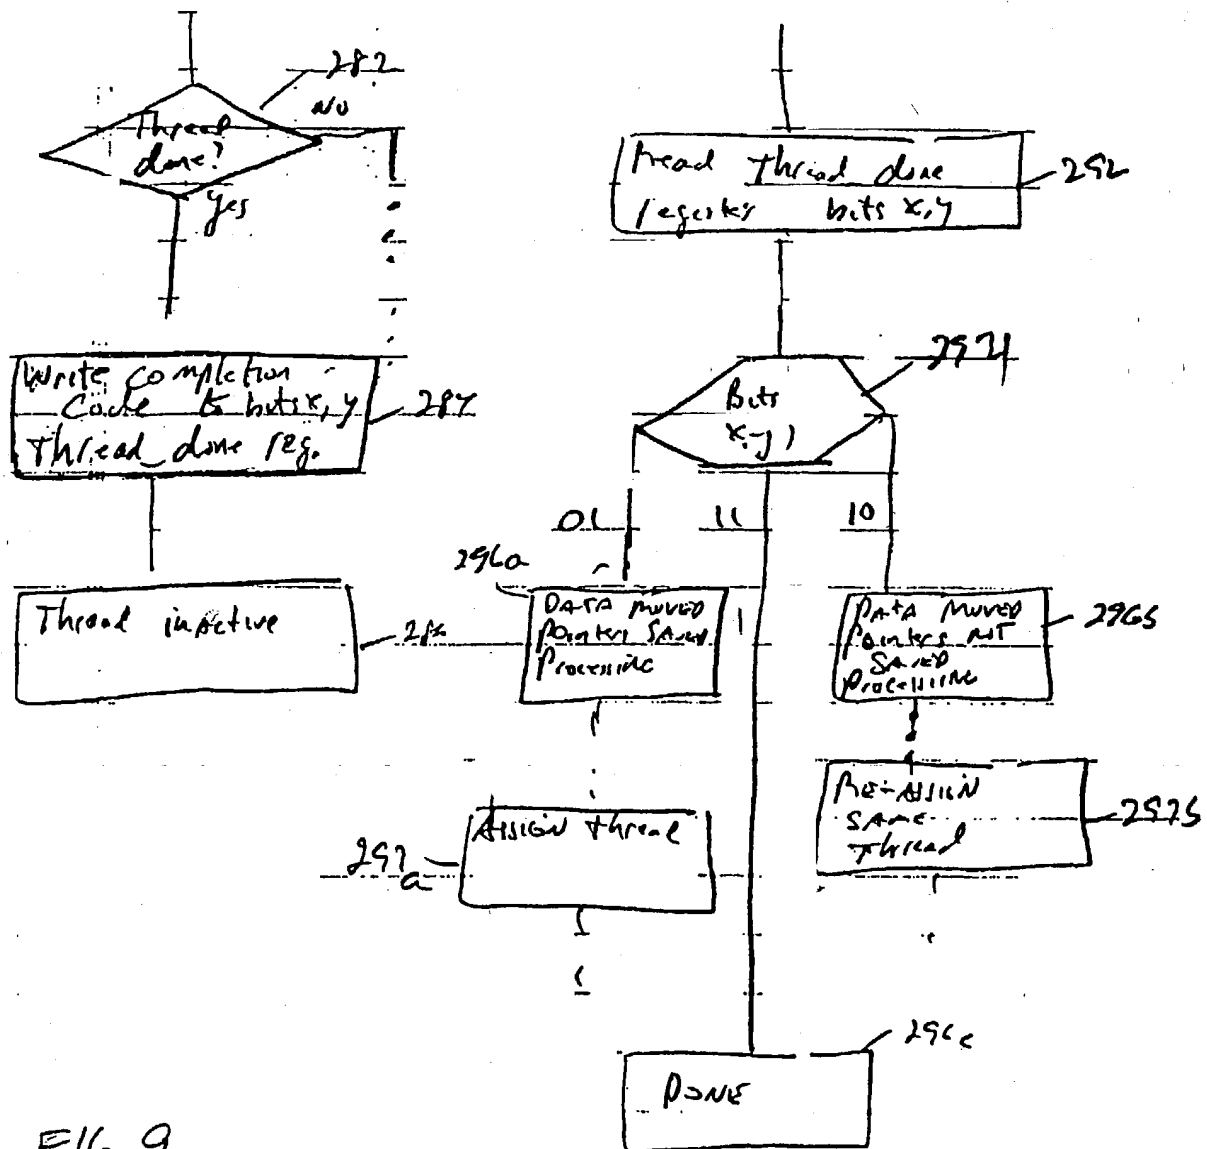 282
NO
Thread
done?
yes
Write completion
Code to bits x, y
Thread_done reg.
284
Thread inactive
286
Read thread done
register bits x, y
292
294
Bits
x, y
01
11
10
296a
DATA MOVED
Pointers SAVED
Processing
DATA MOVED
Pointers NOT
SAVED
Processing
296b
ASSIGN thread
297
a
RE-ASSIGN
SAME
Thread
297b
296c
DONE
FIG. 9